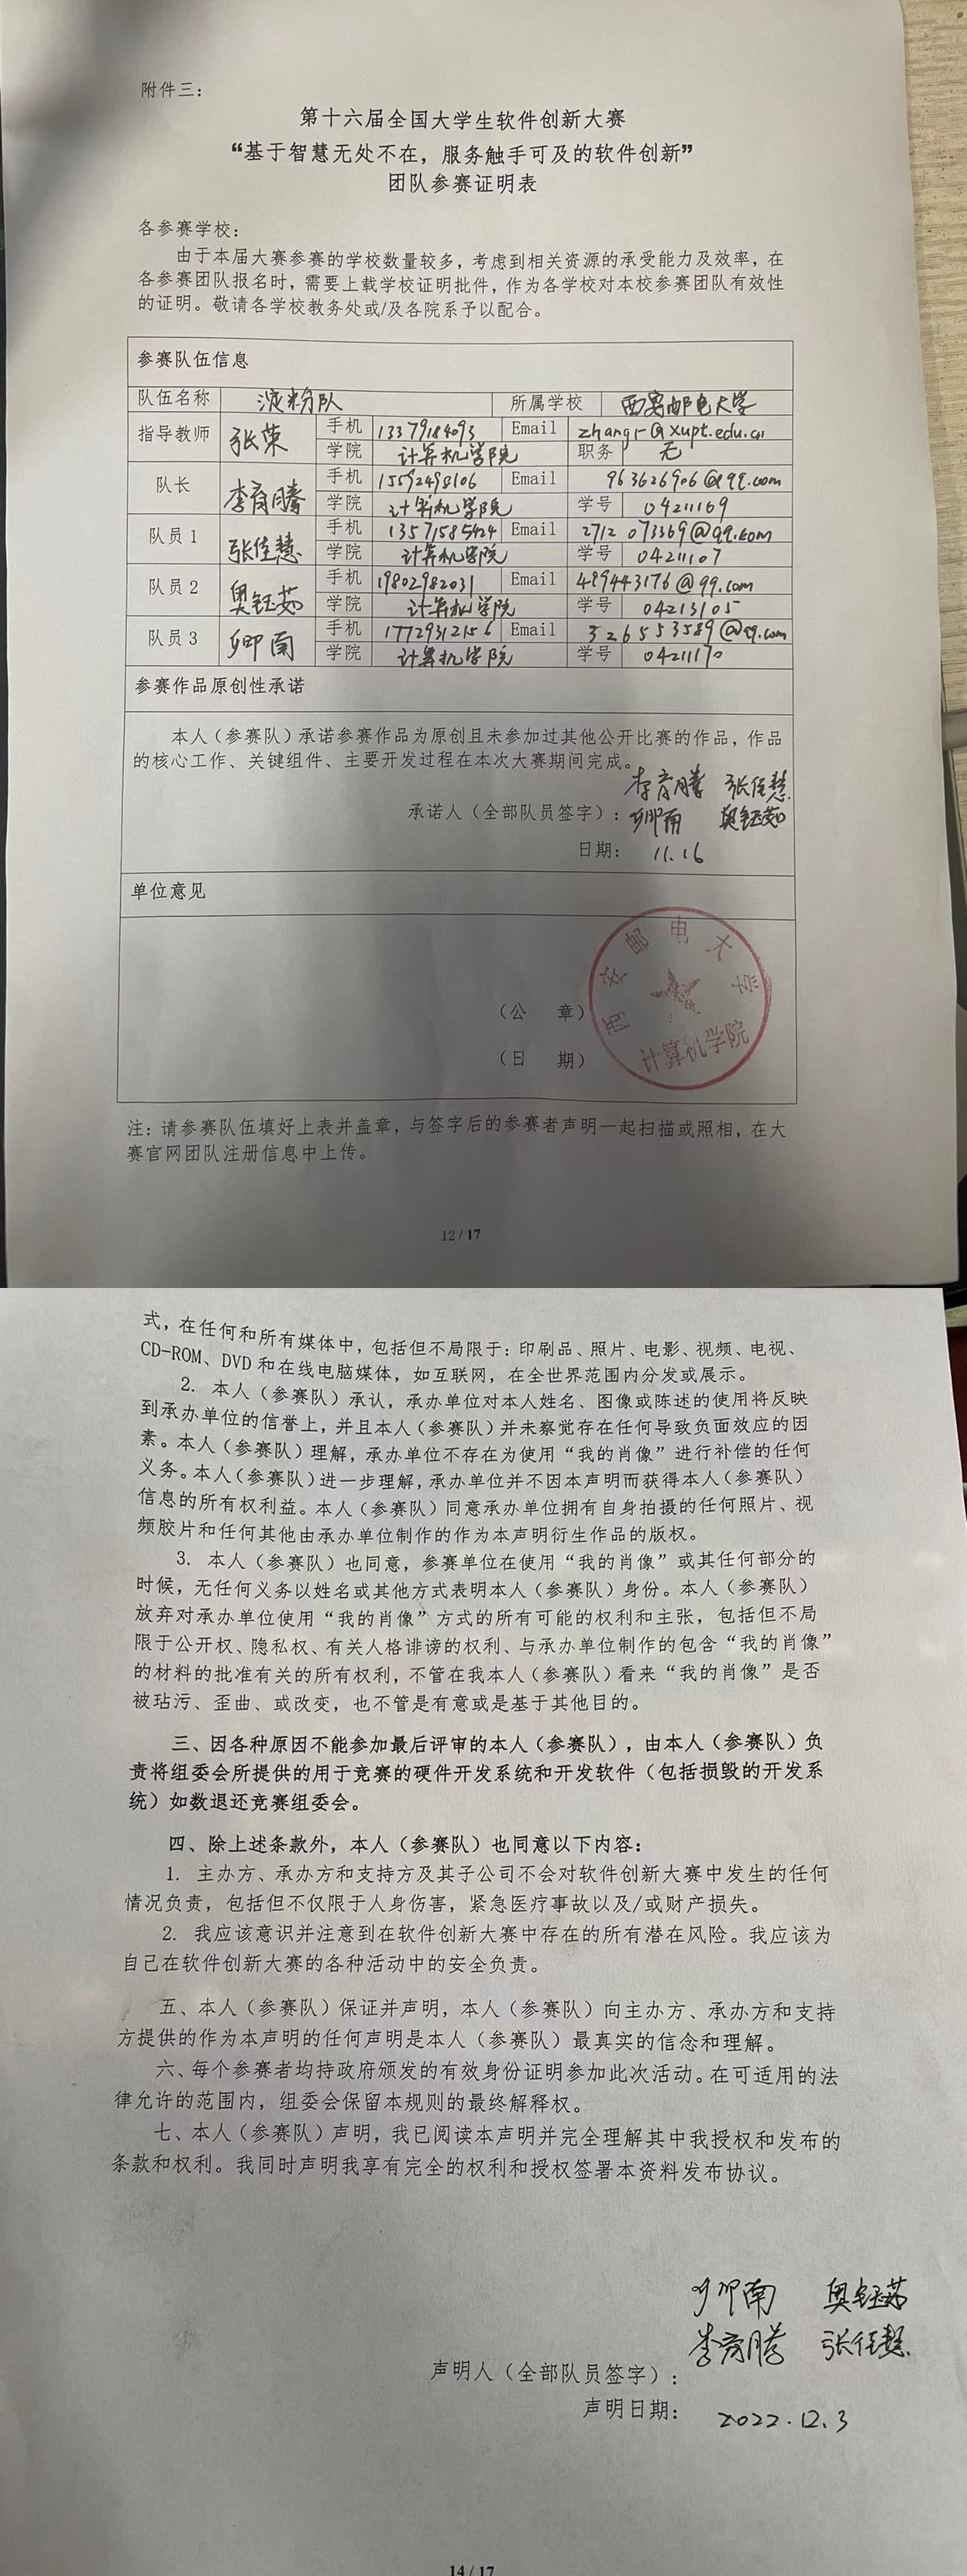 附件三：
第十六届全国大学生软件创新大赛
“基于智慧无处不在，服务触手可及的软件创新”
团队参赛证明表
各参赛学校：
由于本届大赛参赛的学校数量较多，考虑到相关资源的承受能力及效率，在
各参赛团队报名时，需要上载学校证明批件，作为各学校对本校参赛团队有效性
的证明。敬请各学校教务处或/及各院系予以配合。
参赛队伍信息
队伍名称 淀粉队 所属学校 西安邮电大学
指导教师 张荣 手机 13379184093 Email zhangr@xupt.edu.cn
学院 计算机学院 职务 无
队长 李育腾 手机 15592498106 Email 963626906@qq.com
学院 计算机学院 学号 04211169
队员1 张佳慧 手机 13571585424 Email 2712073369@qq.com
学院 计算机学院 学号 04211107
队员2 奥钰茹 手机 19802982031 Email 489443176@qq.com
学院 计算机学院 学号 04213105
队员3 卿南 手机 17729312156 Email 326553589@qq.com
学院 计算机学院 学号 04211170
参赛作品原创性承诺
本人（参赛队）承诺参赛作品为原创且未参加过其他公开比赛的作品，作品
的核心工作、关键组件、主要开发过程在本次大赛期间完成。
李育腾 张佳慧
承诺人（全部队员签字）：卿南 奥钰茹
日期： 11.16
单位意见
西安邮电大学
计算机学院
（公 章）
（日 期）
注：请参赛队伍填好上表并盖章，与签字后的参赛者声明一起扫描或照相，在大
赛官网团队注册信息中上传。
12 / 17
式，在任何和所有媒体中，包括但不局限于：印刷品、照片、电影、视频、电视、
CD-ROM、DVD 和在线电脑媒体，如互联网，在全世界范围内分发或展示。
2. 本人（参赛队）承认，承办单位对本人姓名、图像或陈述的使用将反映
到承办单位的信誉上，并且本人（参赛队）并未察觉存在任何导致负面效应的因
素。本人（参赛队）理解，承办单位不存在为使用“我的肖像”进行补偿的任何
义务。本人（参赛队）进一步理解，承办单位并不因本声明而获得本人（参赛队）
信息的所有权利益。本人（参赛队）同意承办单位拥有自身拍摄的任何照片、视
频胶片和任何其他由承办单位制作的作为本声明衍生作品的版权。
3. 本人（参赛队）也同意，参赛单位在使用“我的肖像”或其任何部分的
时候，无任何义务以姓名或其他方式表明本人（参赛队）身份。本人（参赛队）
放弃对承办单位使用“我的肖像”方式的所有可能的权利和主张，包括但不局
限于公开权、隐私权、有关人格诽谤的权利、与承办单位制作的包含“我的肖像”
的材料的批准有关的所有权利，不管在我本人（参赛队）看来“我的肖像”是否
被玷污、歪曲、或改变，也不管是有意或是基于其他目的。
三、因各种原因不能参加最后评审的本人（参赛队），由本人（参赛队）负
责将组委会所提供的用于竞赛的硬件开发系统和开发软件（包括损毁的开发系
统）如数退还竞赛组委会。
四、除上述条款外，本人（参赛队）也同意以下内容：
1. 主办方、承办方和支持方及其子公司不会对软件创新大赛中发生的任何
情况负责，包括但不仅限于人身伤害，紧急医疗事故以及/或财产损失。
2. 我应该意识并注意到在软件创新大赛中存在的所有潜在风险。我应该为
自己在软件创新大赛的各种活动中的安全负责。
五、本人（参赛队）保证并声明，本人（参赛队）向主办方、承办方和支持
方提供的作为本声明的任何声明是本人（参赛队）最真实的信念和理解。
六、每个参赛者均持政府颁发的有效身份证明参加此次活动。在可适用的法
律允许的范围内，组委会保留本规则的最终解释权。
七、本人（参赛队）声明，我已阅读本声明并完全理解其中我授权和发布的
条款和权利。我同时声明我享有完全的权利和授权签署本资料发布协议。
卿南 奥钰茹
李育腾 张佳慧
声明人（全部队员签字）：
声明日期： 2022.12.3
14 / 17